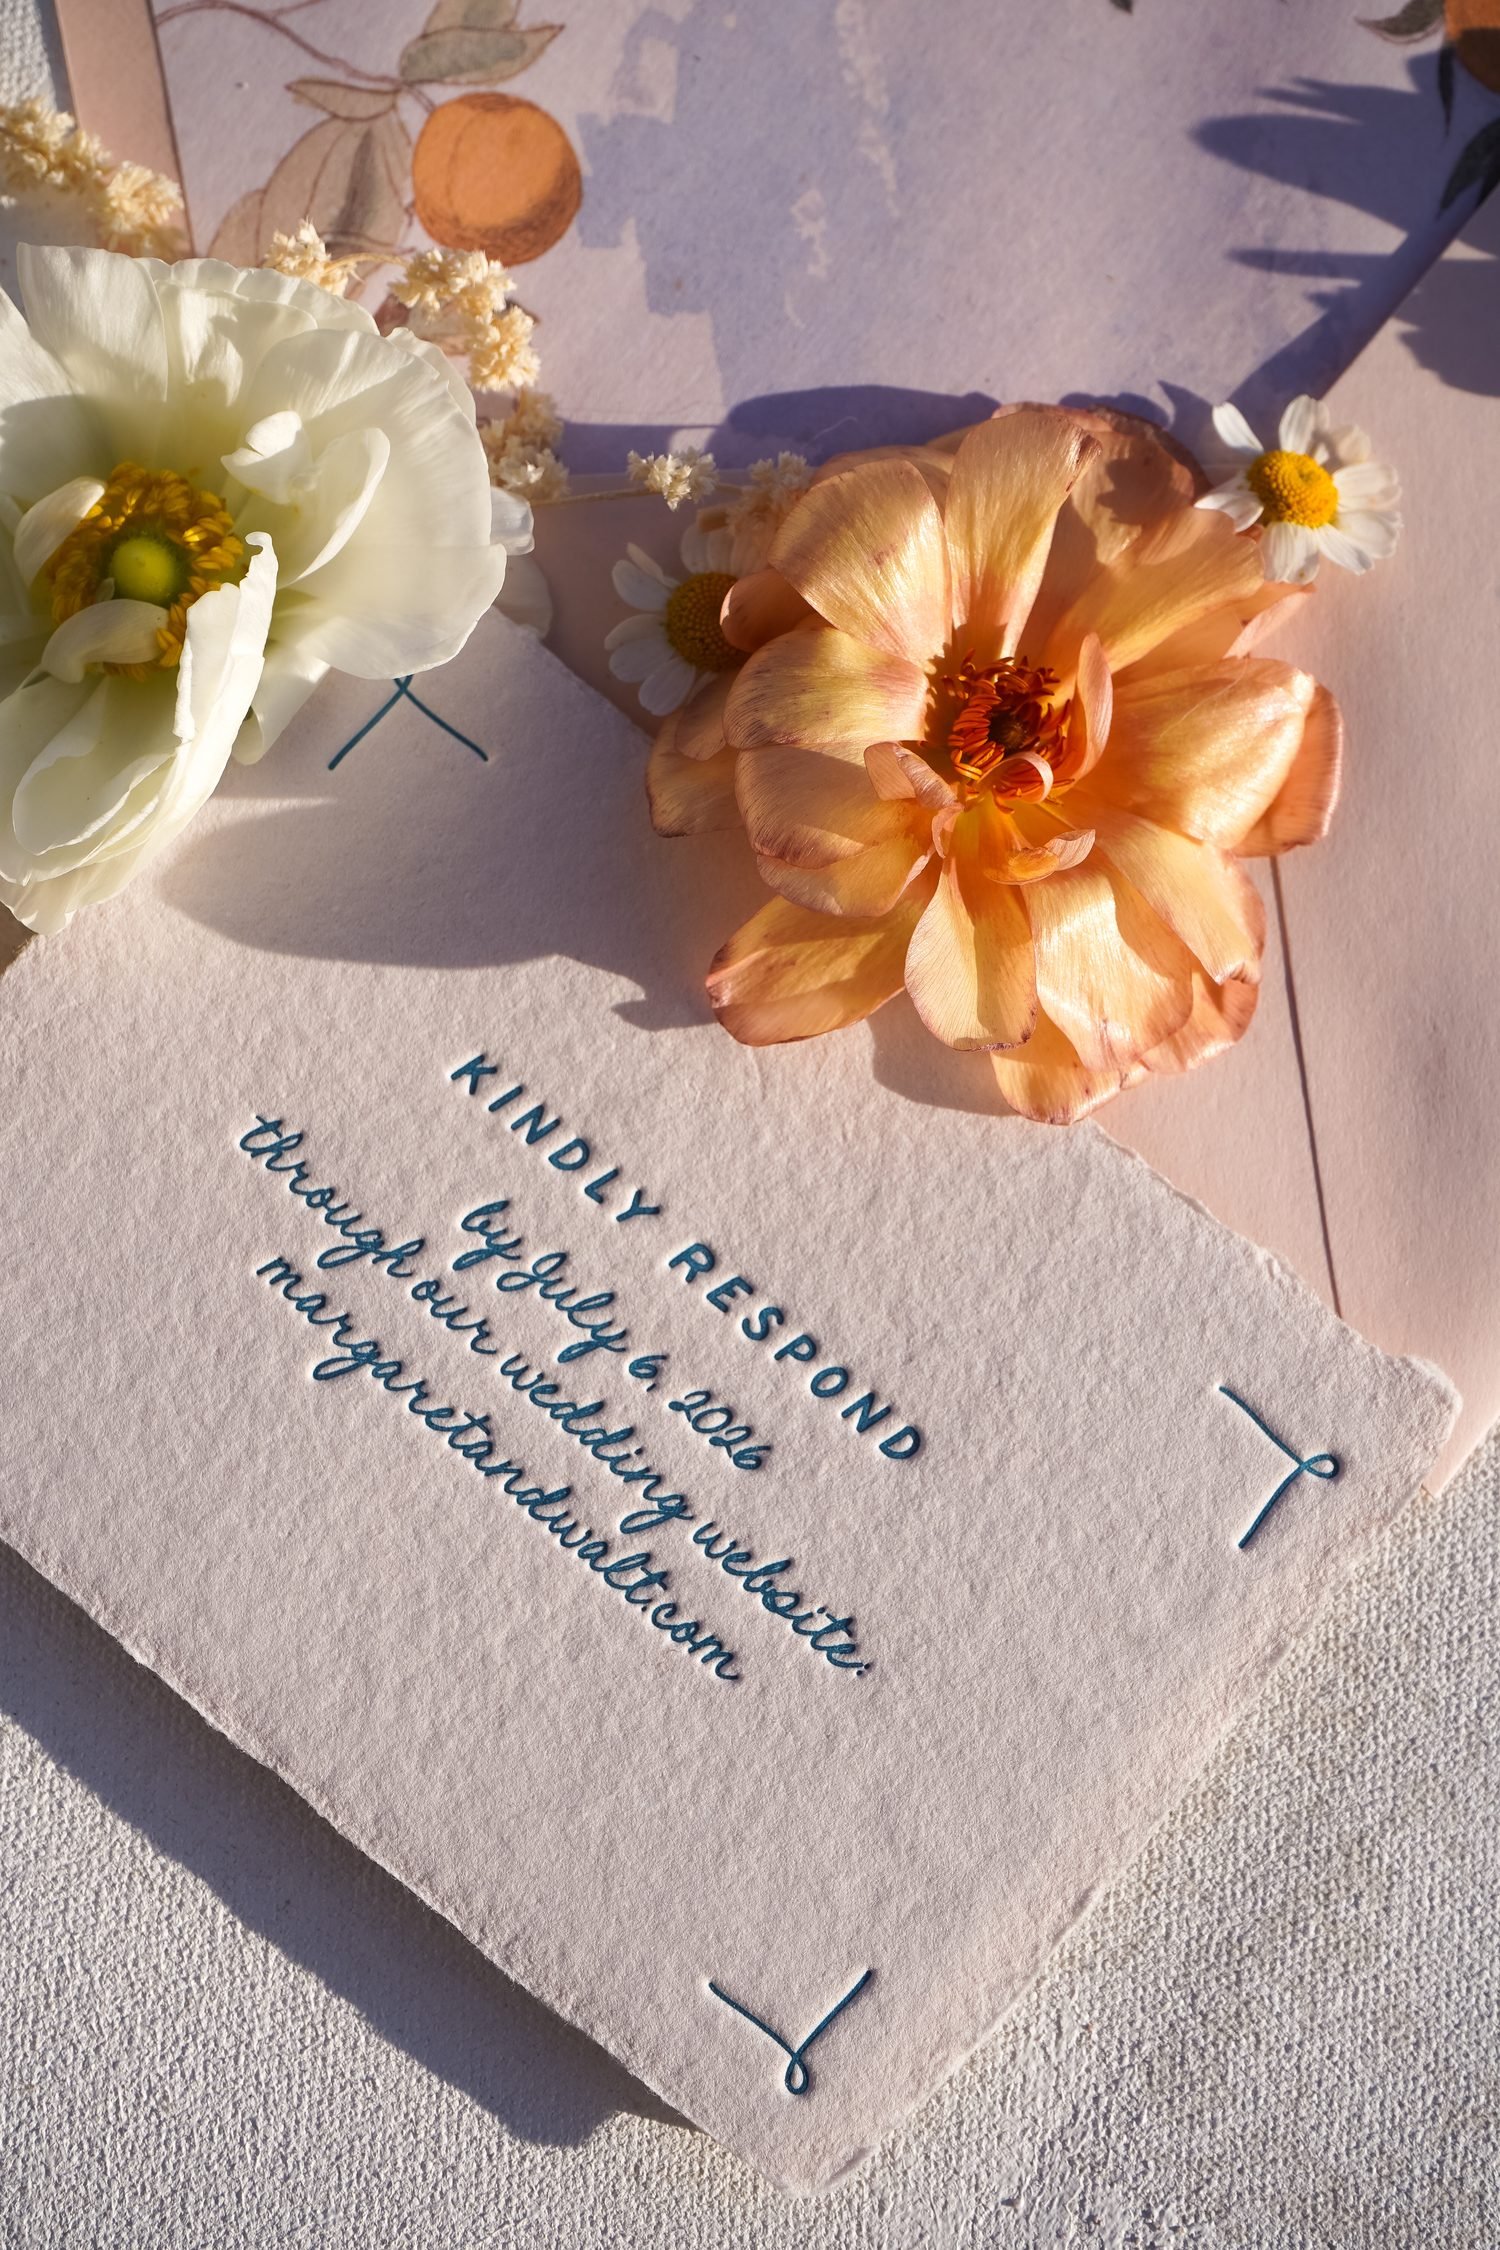 KINDLY RESPOND
by July 6, 2026
through our wedding website:
margaretandwalt.com